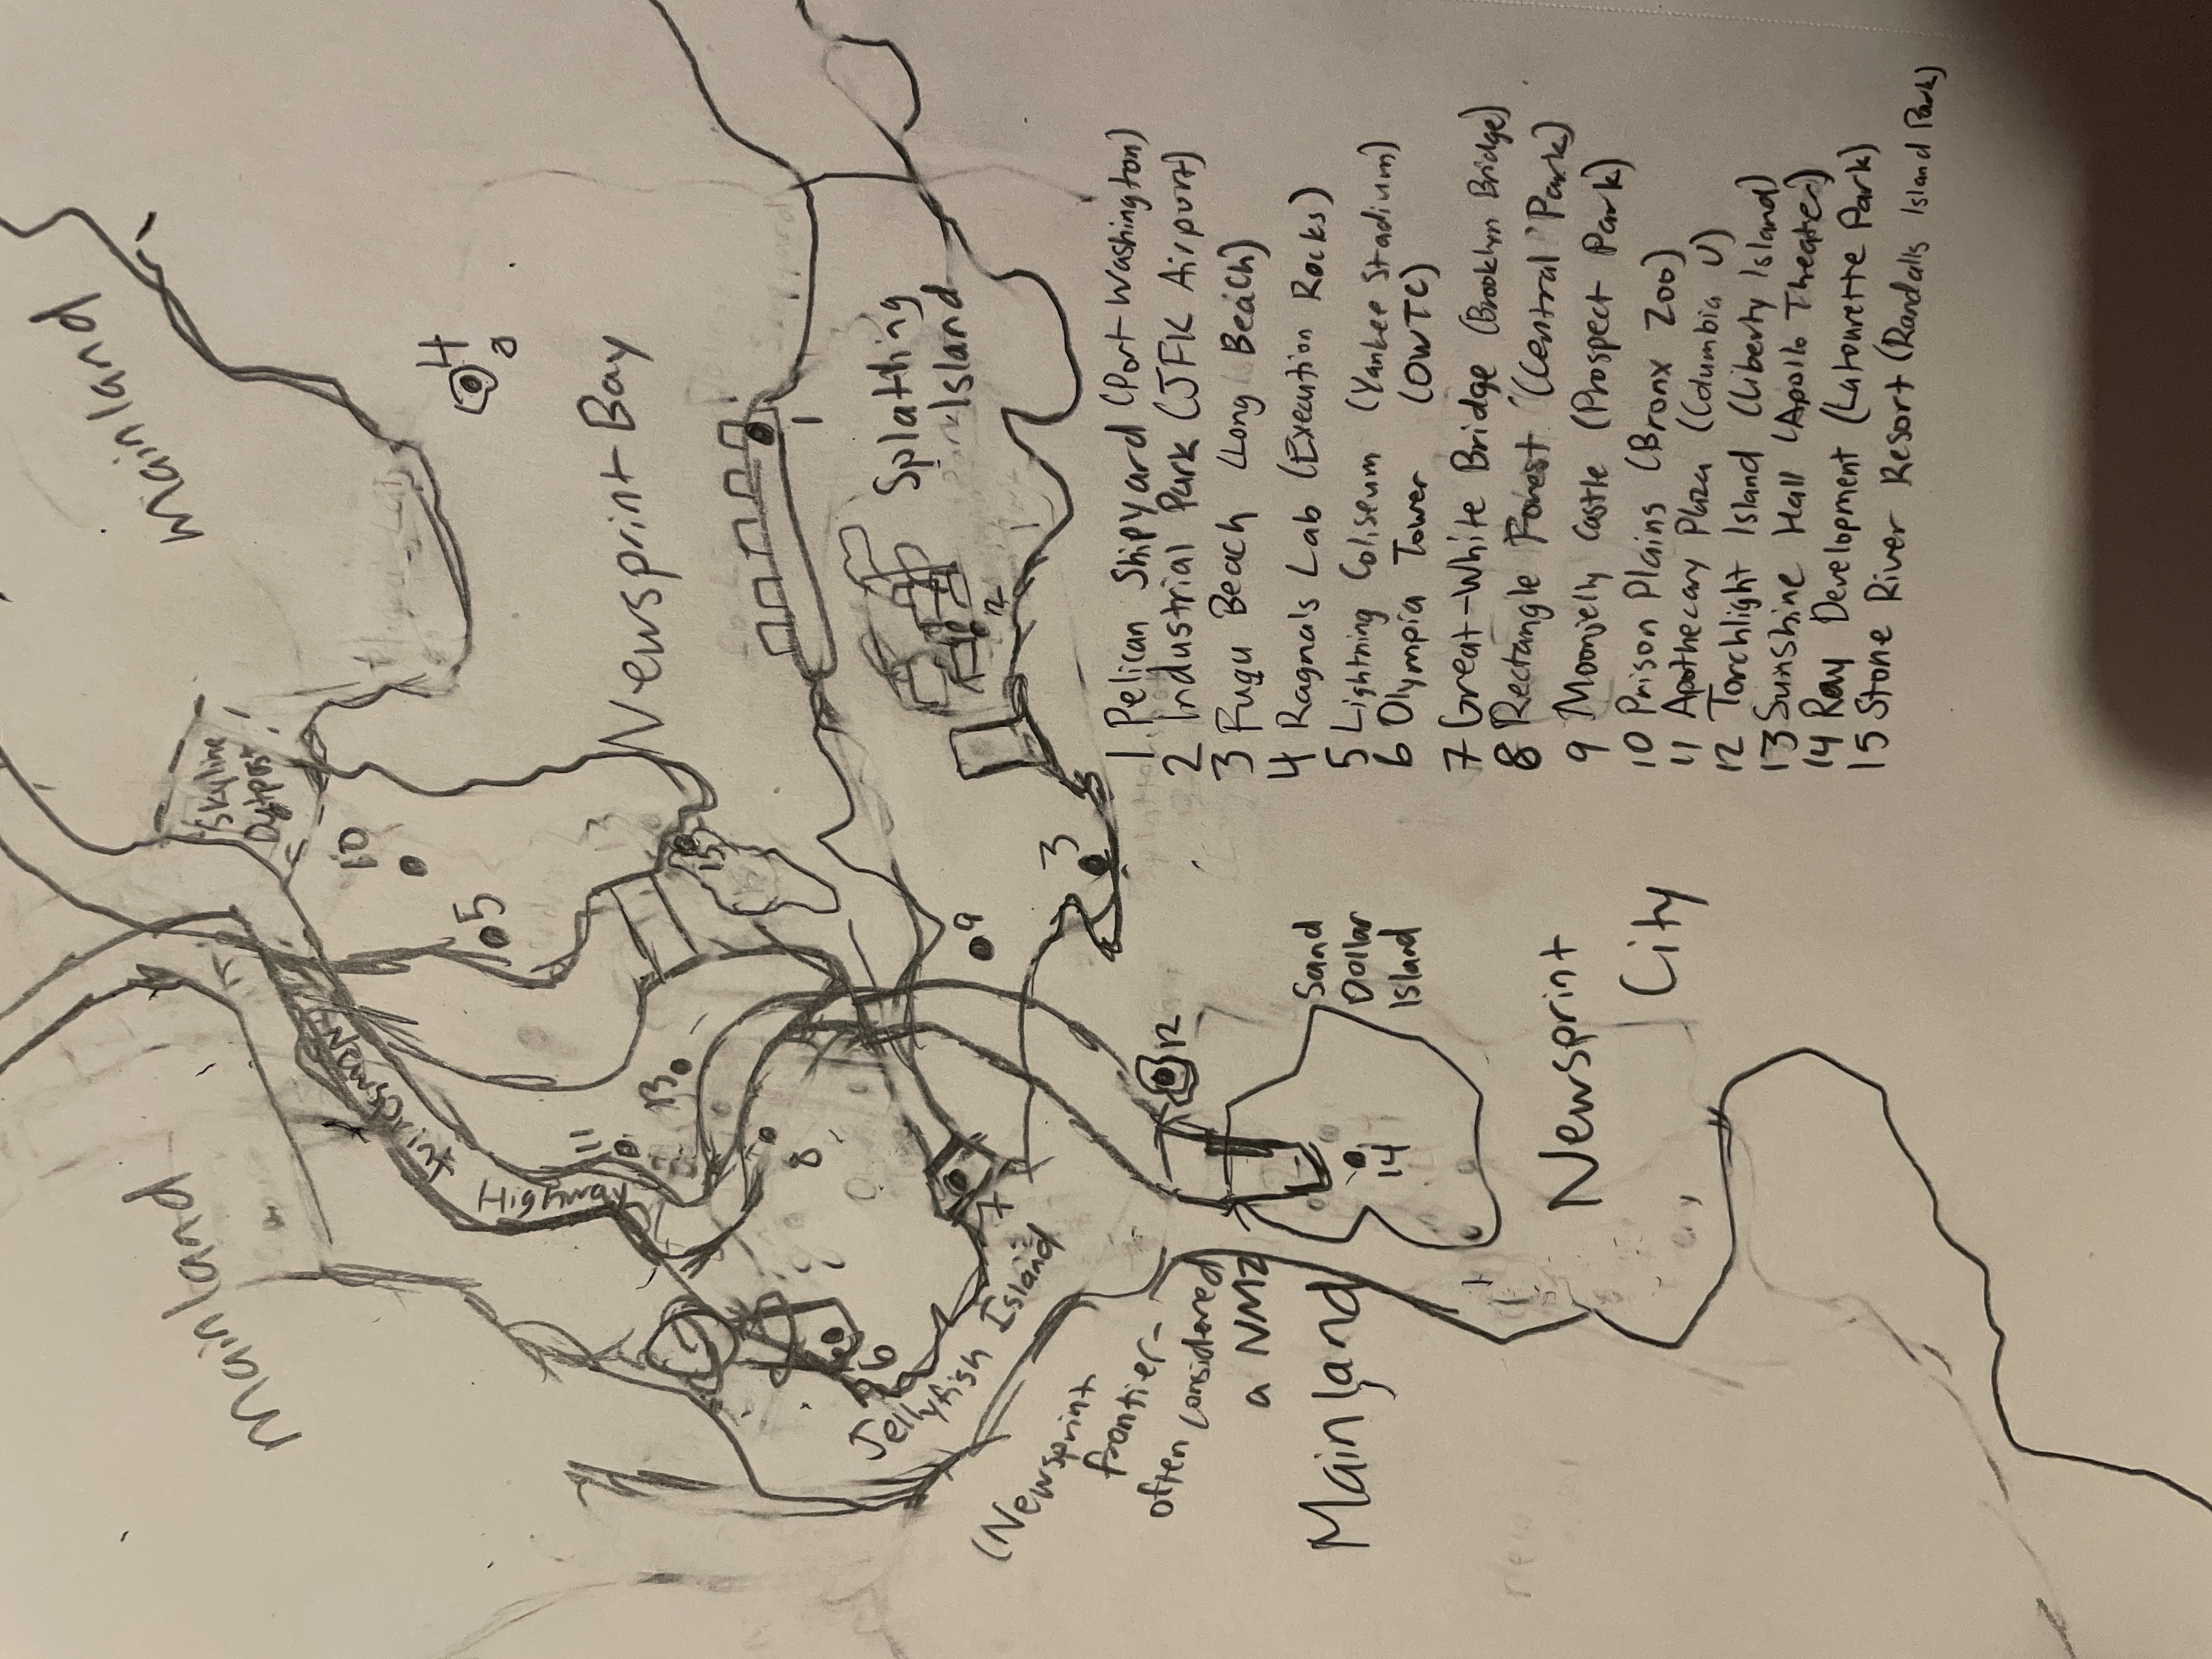 Mainland
Mainland
Skyline
Outpost
Newsprint
Highway
10
5
4
11
13
Newsprint Bay
15
8
6
1
Jellyfish Island
Splatling
Island
7
9
2
3
(Newsprint
frontier-
often considered
a NMZ
12
Mainland
Sand
Dollar
Island
14
Newsprint
City
1 Pelican Shipyard (Port Washington)
2 Industrial Park (JFK Airport)
3 Fugu Beach (Long Beach)
4 Ragna's Lab (Execution Rocks)
5 Lightning Coliseum (Yankee Stadium)
6 Olympia Tower (OWTC)
7 Great-White Bridge (Brooklyn Bridge)
8 Rectangle Forest (Central Park)
9 Moonjelly Castle (Prospect Park)
10 Prison Plains (Bronx Zoo)
11 Apothecary Plaza (Columbia U)
12 Torchlight Island (Liberty Island)
13 Sunshine Hall (Apollo Theater)
14 Ray Development (Latourette Park)
15 Stone River Resort (Randalls Island Park)